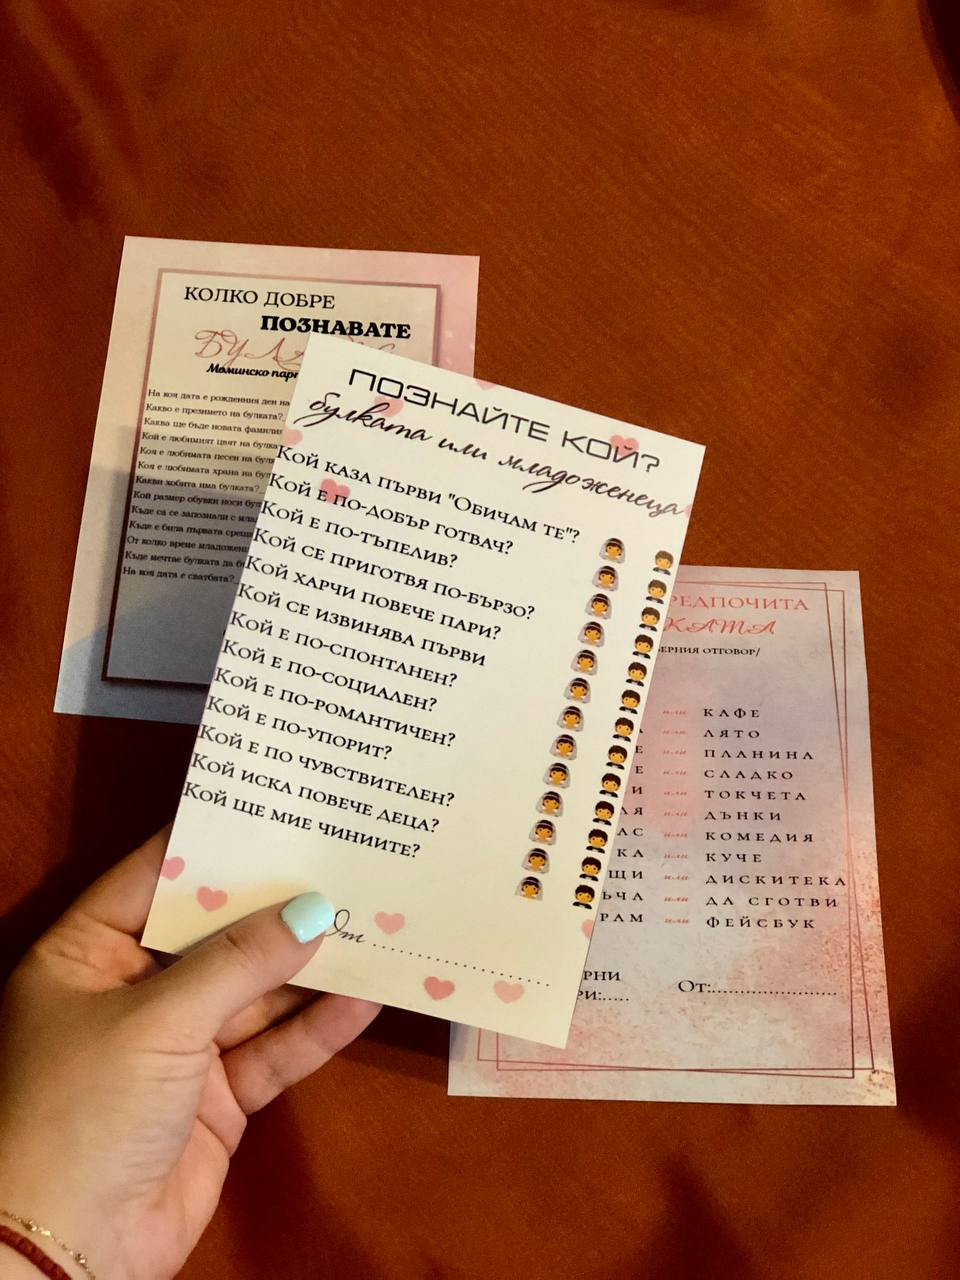 КОЛКО ДОБРЕ
ПОЗНАВАТЕ
Моминско
На коя дата е рожденния ден на
Какво е презимето на булката?
Каква ще бъде новата фамилия
Кой е любимият цвят на
Коя е любимата песен на
Коя е любимата храна на
Какви хобита има булката?
Кой размер обувки носи
Къде са се запознали с
Къде е била първата
От колко време
Къде мечтае булката да
На коя дата е сватбата?
ПОЗНАЙТЕ КОЙ?
булката или младоженеца
Кой каза първи "Обичам те"?
Кой е по-добър готвач?
Кой е по-тъпелив?
Кой се приготвя по-бързо?
Кой харчи повече пари?
Кой се извинява първи
Кой е по-спонтанен?
Кой е по-социален?
Кой е по-романтичен?
Кой е по-упорит?
Кой е по чувствителен?
Кой иска повече деца?
Кой ще мие чиниите?
От ........................
РЕДПОЧИТА
КАТА
ЕРНИЯ ОТГОВОР/
или КАФЕ
или ЛЯТО
Е или ПЛАНИНА
Е или СЛАДКО
И или ТОКЧЕТА
ЛЯ или ДЪНКИ
АС или КОМЕДИЯ
КА или КУЧЕ
ЩИ или ДИСКИТЕКА
ЬЧА или ДА СГОТВИ
РАМ или ФЕЙСБУК
РНИ
РИ:..... От:........................